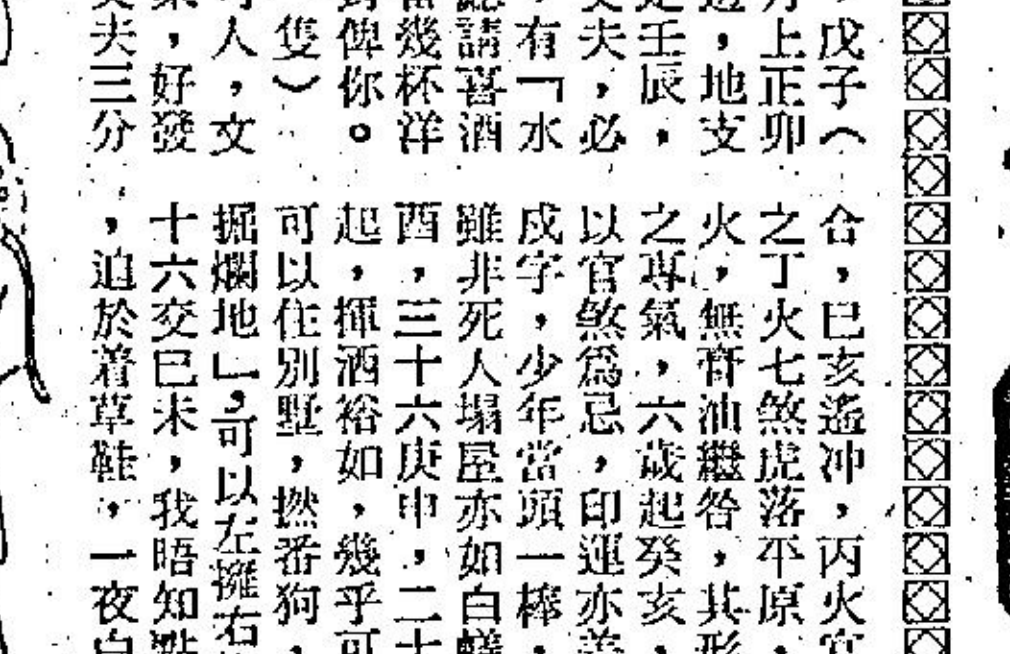 ，戊子（
上正卯
，地支
壬辰，
夫，必
，有「水
請喜酒
幾杯洋
俾你。
隻）
人，文
，好發
夫三分
合，巳亥遙冲，丙火
之丁火七煞虎落平原，
火，無膏油繼咎，其形
之專氣，六歲起癸亥，
以官煞爲忌，印運亦
戌字，少年當頭一棒，
雖非死人塌屋亦如白蟻
酉，三十六庚申，二十
起，揮洒裕如，幾乎可
可以住別墅，撚番狗，
掘爛地」，可以左擁右
十六交巳未，我唔知點
，迫於着草鞋，一夜白